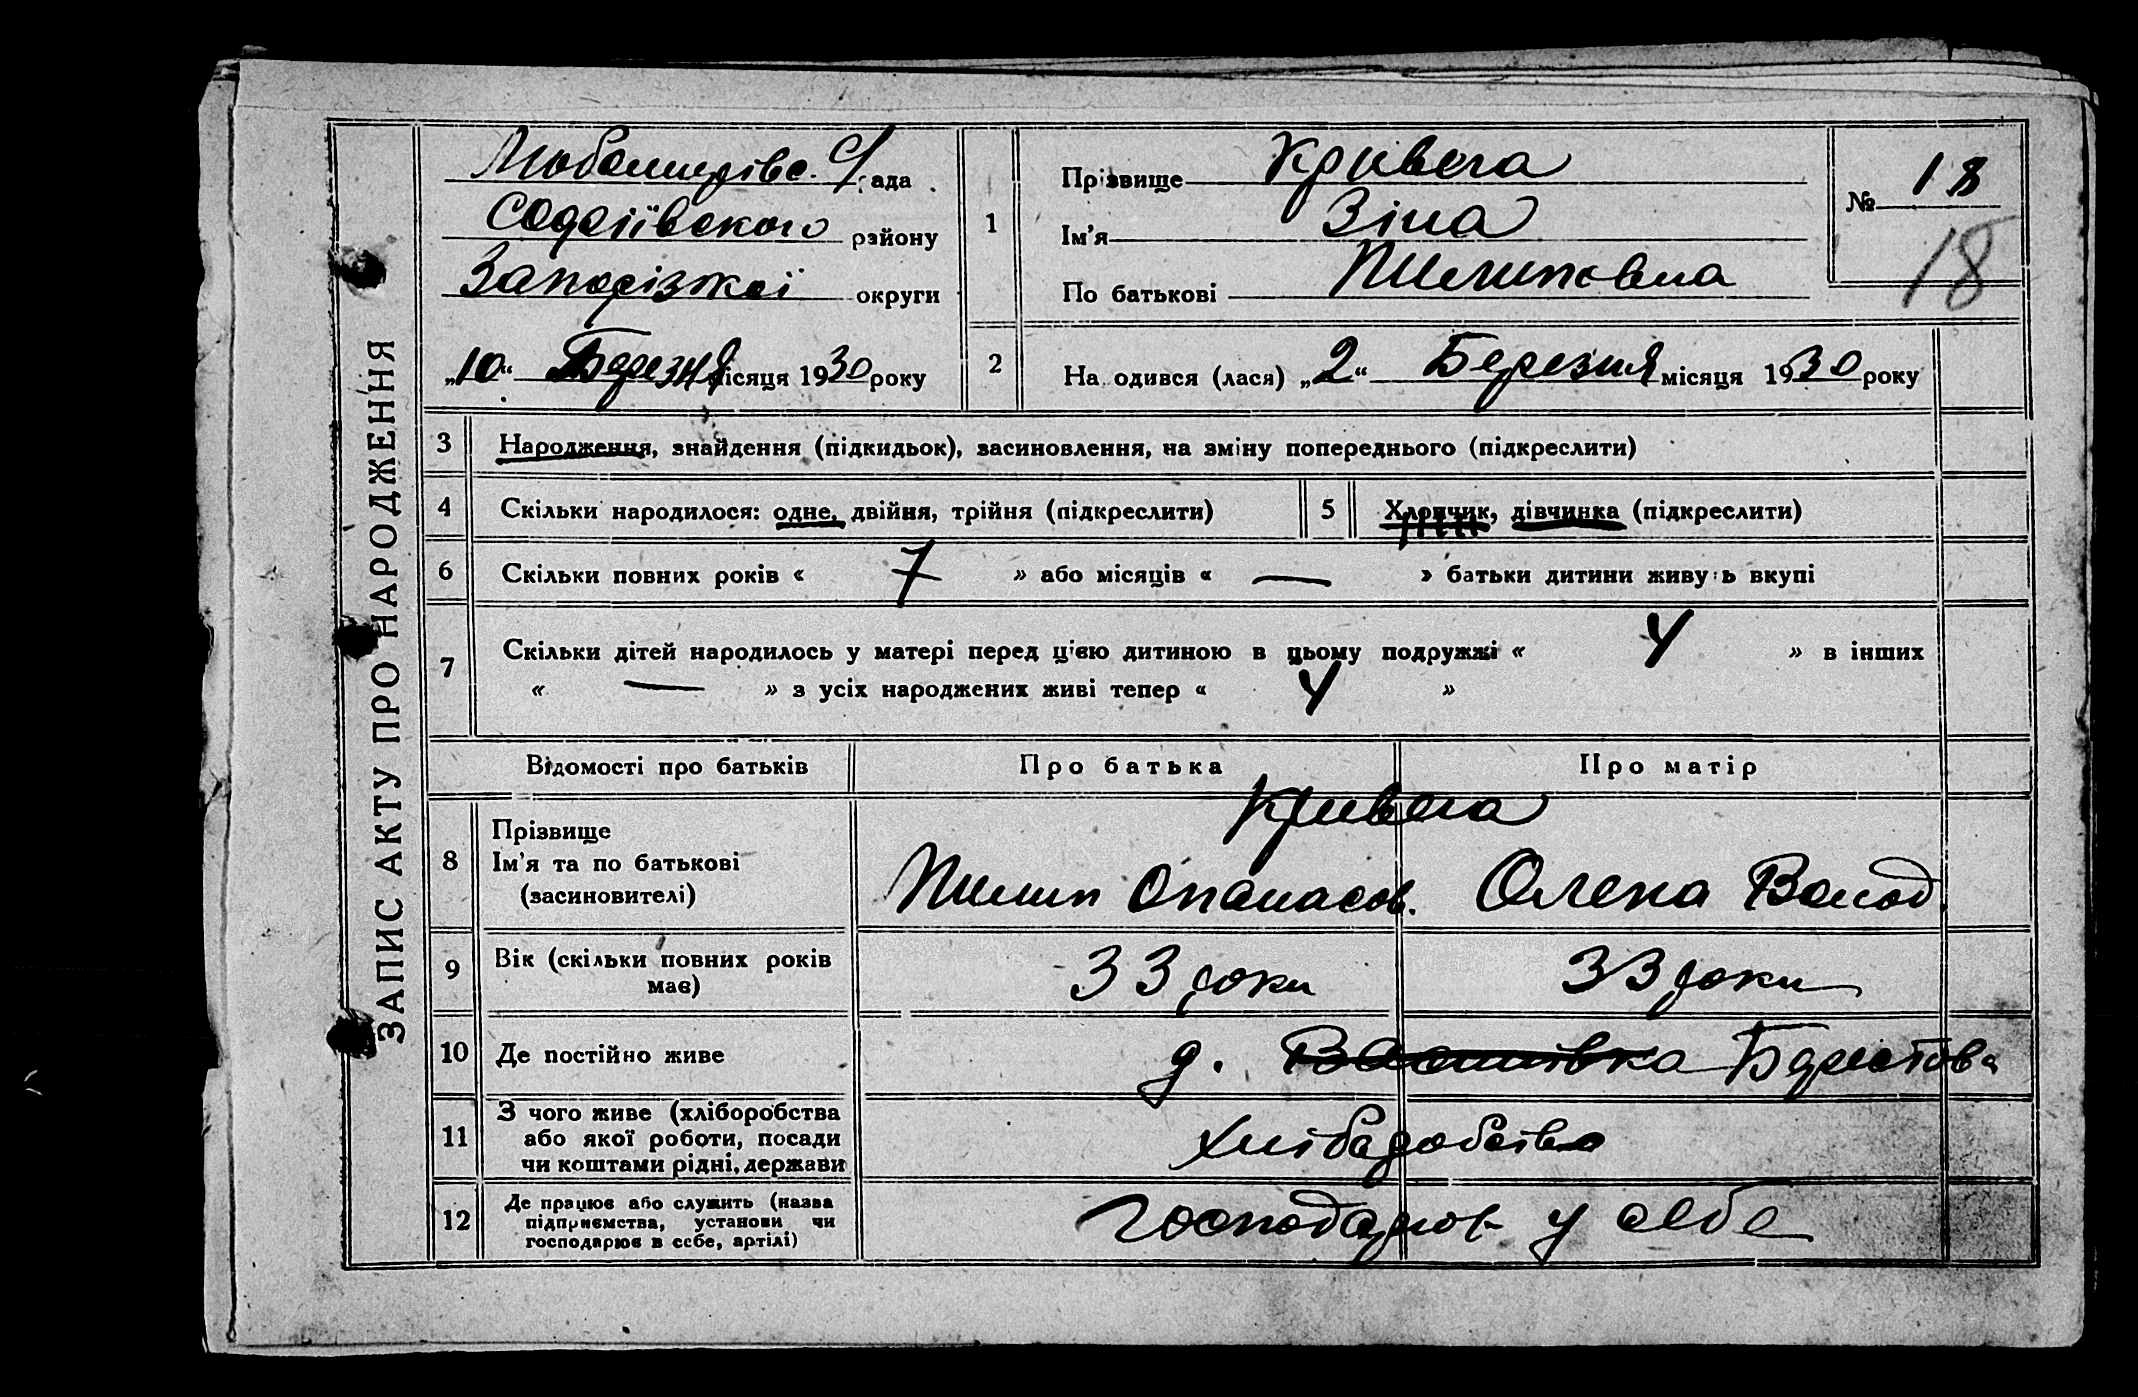 ЗАПИС АКТУ ПРО НАРОДЖЕННЯ
с/рада
району
Запорізкої округи
„10“ Березня місяця 1930 року
1
Прізвище Кривега
Ім'я Зіна
По батькові Пилиповна
№ 18
18
2
На одився (лася) „2“ Березня місяця 1930 року
3 Народження, знайдення (підкидьок), засиновлення, на зміну попереднього (підкреслити)
4 Скільки народилося: одне, двійня, трійня (підкреслити)
5 Хлопчик, дівчинка (підкреслити)
6 Скільки повних років « 7 » або місяців « — » батьки дитини живуть вкупі
7 Скільки дітей народилось у матері перед цією дитиною в цьому подружжі « 4 » в інших
« — » з усіх народжених живі тепер « 4 »
Відомості про батьків Про батька Про матір
8 Прізвище
Ім'я та по батькові
(засиновителі)
Кривега
Пилип Опанасов. Олена Волод.
9 Вік (скільки повних років
має)
33 роки 33 роки
10 Де постійно живе
д.
11 З чого живе (хліборобства
або якої роботи, посади
чи коштами рідні, держави
12 Де працює або служить (назва
підприємства, установи чи
господарює в себе, артілі)
у себе